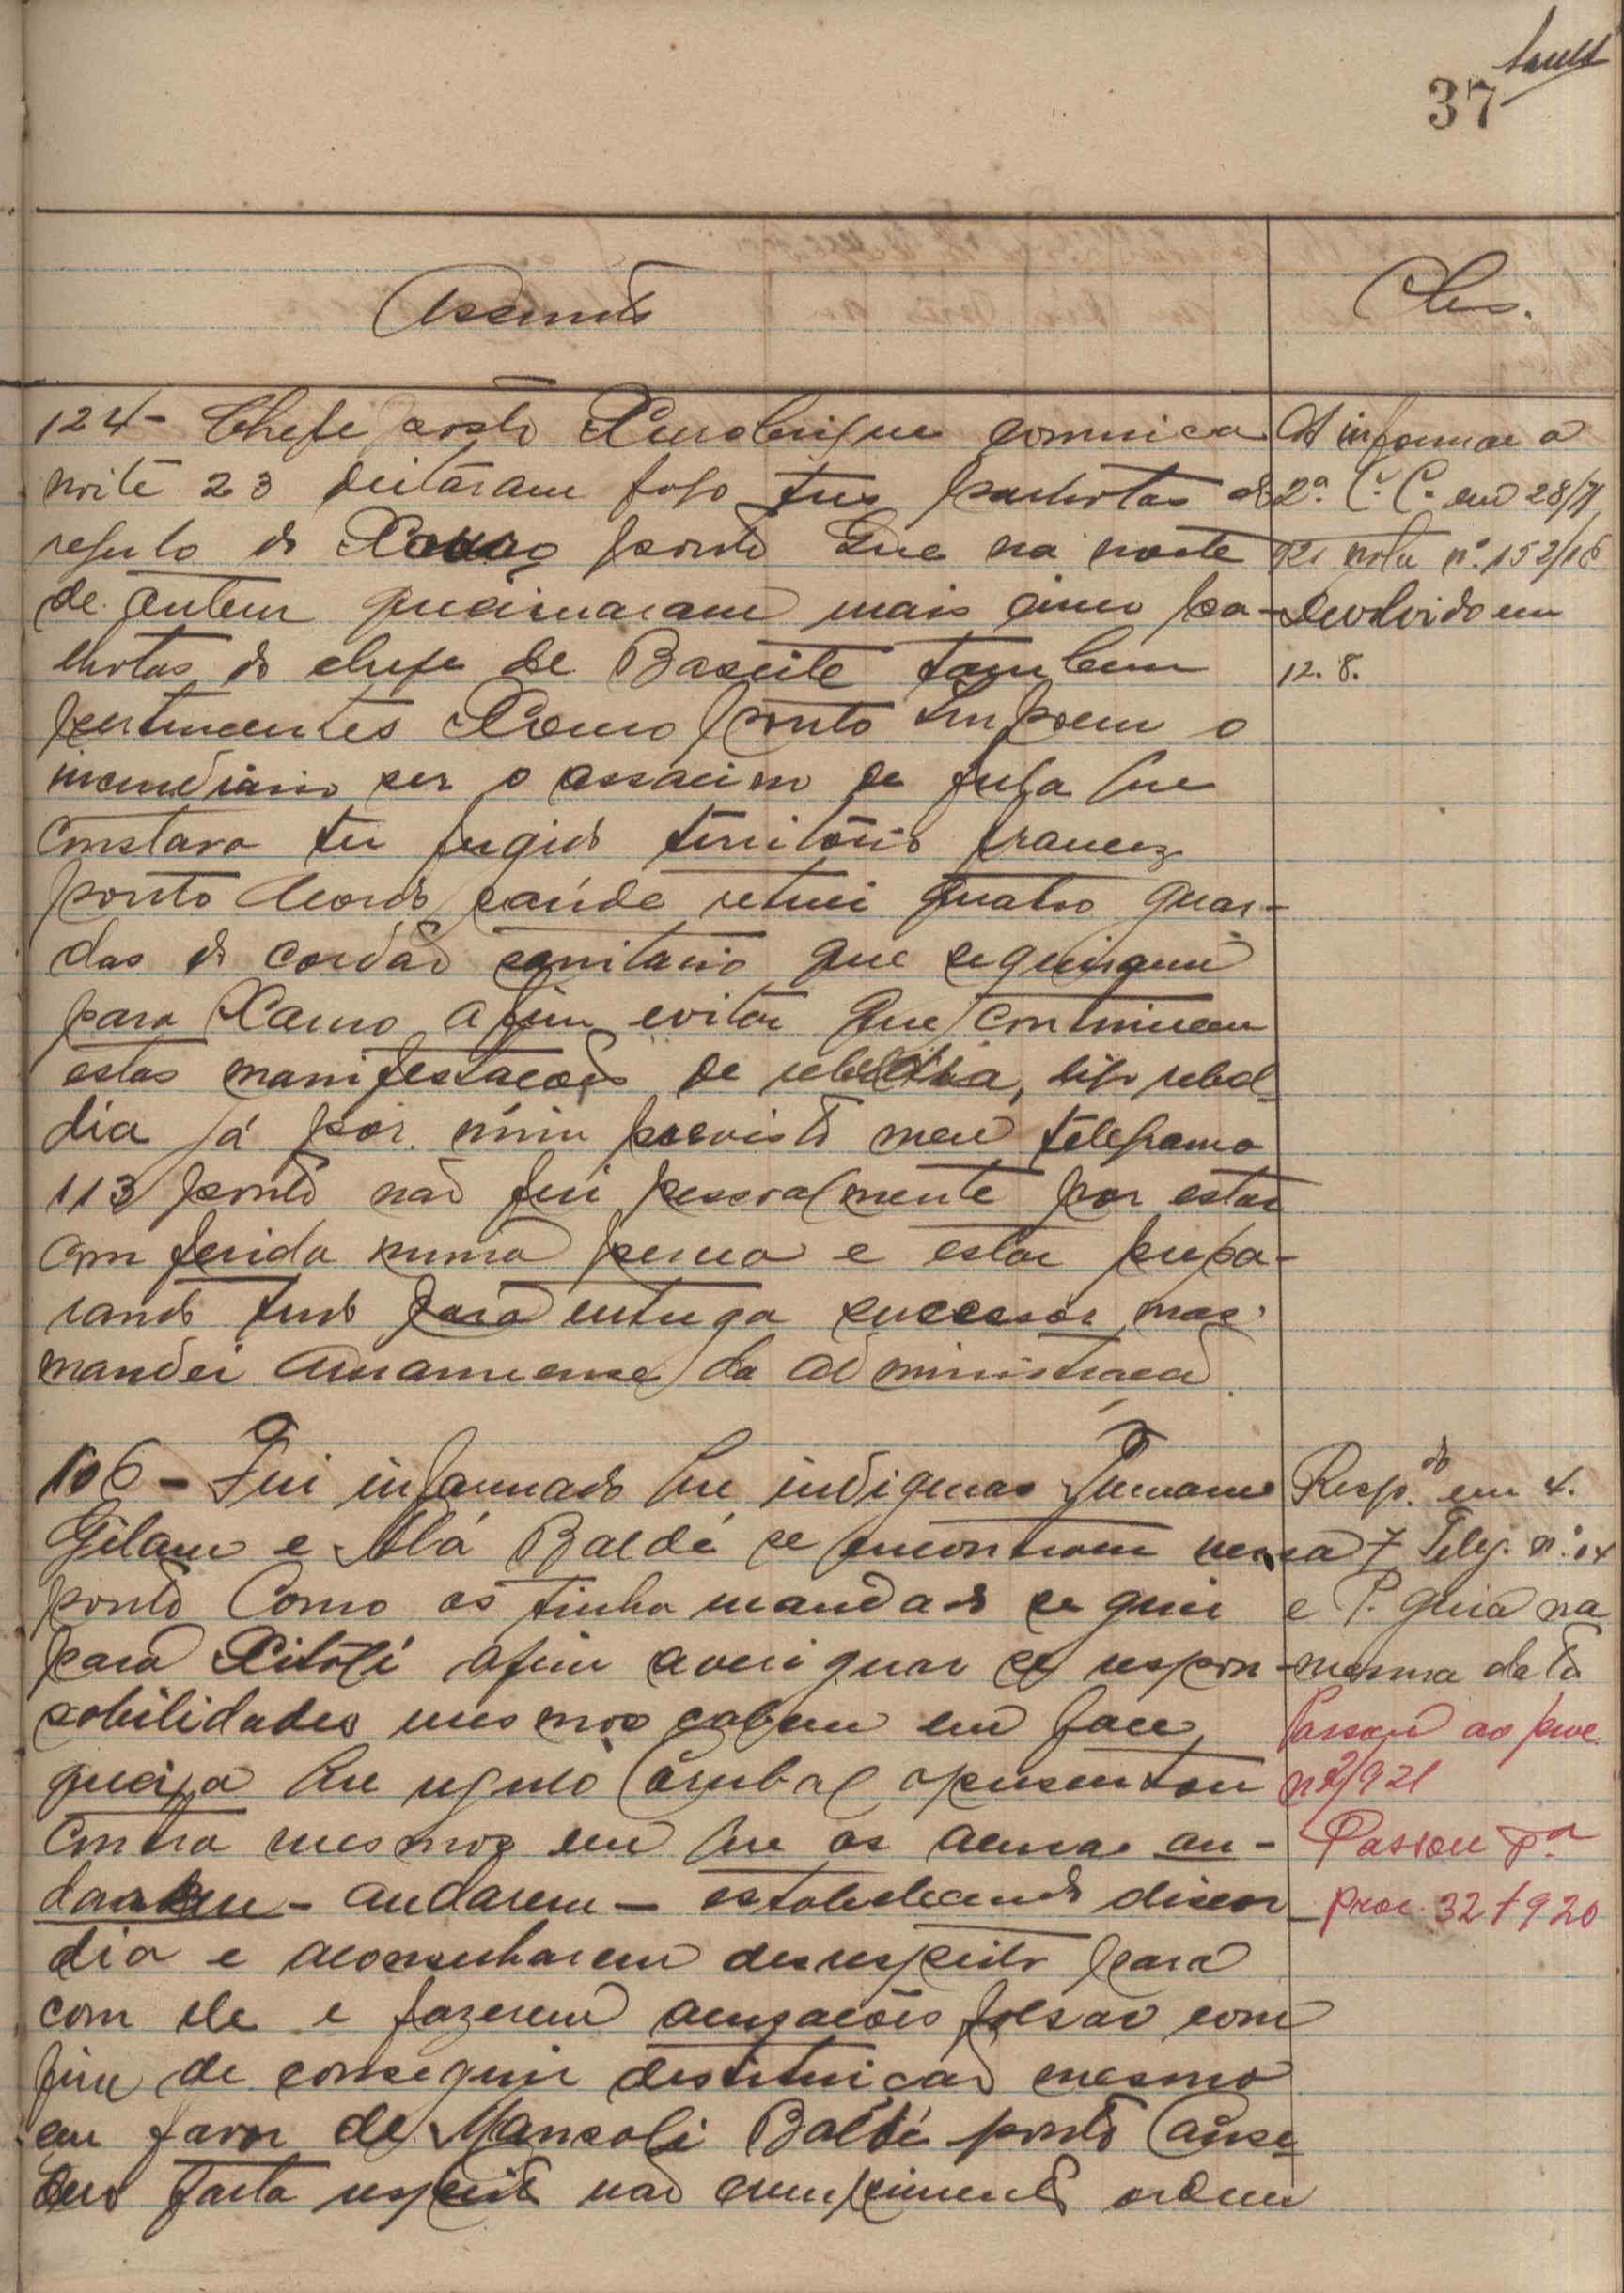 37
Assunto
Obs.
124 - Chefe posto comunica
noite 23 deitaram fogo tres palhotas do
regulo do ponto Que na noite
de ontem queimaram mais cinco pa-
lhotas do chefe de tambem
pertencentes ponto o
incendiario ser o assacino de que
constava ter fugido territorio francez
ponto saúde retirei quatro guar-
das do cordão sanitario que seguiram
para afim evitar que continuem
estas manifestações de digo rebel-
dia já por mim previsto meu telegrama
113 ponto não fui pessoalmente por estar
com ferida numa perna e estar prepa-
rando tudo para entrega sucessor mas
mandei amanuense da administração
A informar a
2ª C. C. em 28/7
nota nº 152/16
Devolvido em
12.8.
106 - Fui informado que indigenas
e Alá Baldé se encontram nessa
ponto Como os tinha mandado seguir
para Xitoli afim averiguar se respon-
sabilidades mesmos cabem em face
queixa que regulo Corubal apresentou
contra mesmos em que os acusa an-
- andarem - estabelecendo discor-
dia e aconselharem desrespeito para
com ele e fazerem acusações falsas com
fim de conseguir destituição mesmo
em favor de Mansali Baldé ponto
falta respeito não cumprimento ordem
Resp.do em 4.
7 Teleg. nº 14
e P. guia na
mesma data
Passou ao proc.
nº 2/921
Passou pª
proc. 32/920